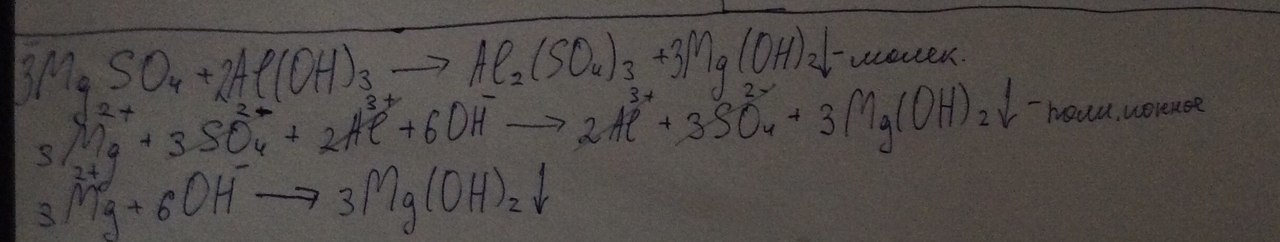 3MgSO₄ + 2Al(OH)₃ → Al₂(SO₄)₃ + 3Mg(OH)₂↓ - молек.
3Mg²⁺ + 3SO₄²⁻ + 2Al³⁺ + 6OH⁻ → 2Al³⁺ + 3SO₄²⁻ + 3Mg(OH)₂↓ - полн. ионное
3Mg²⁺ + 6OH⁻ → 3Mg(OH)₂↓